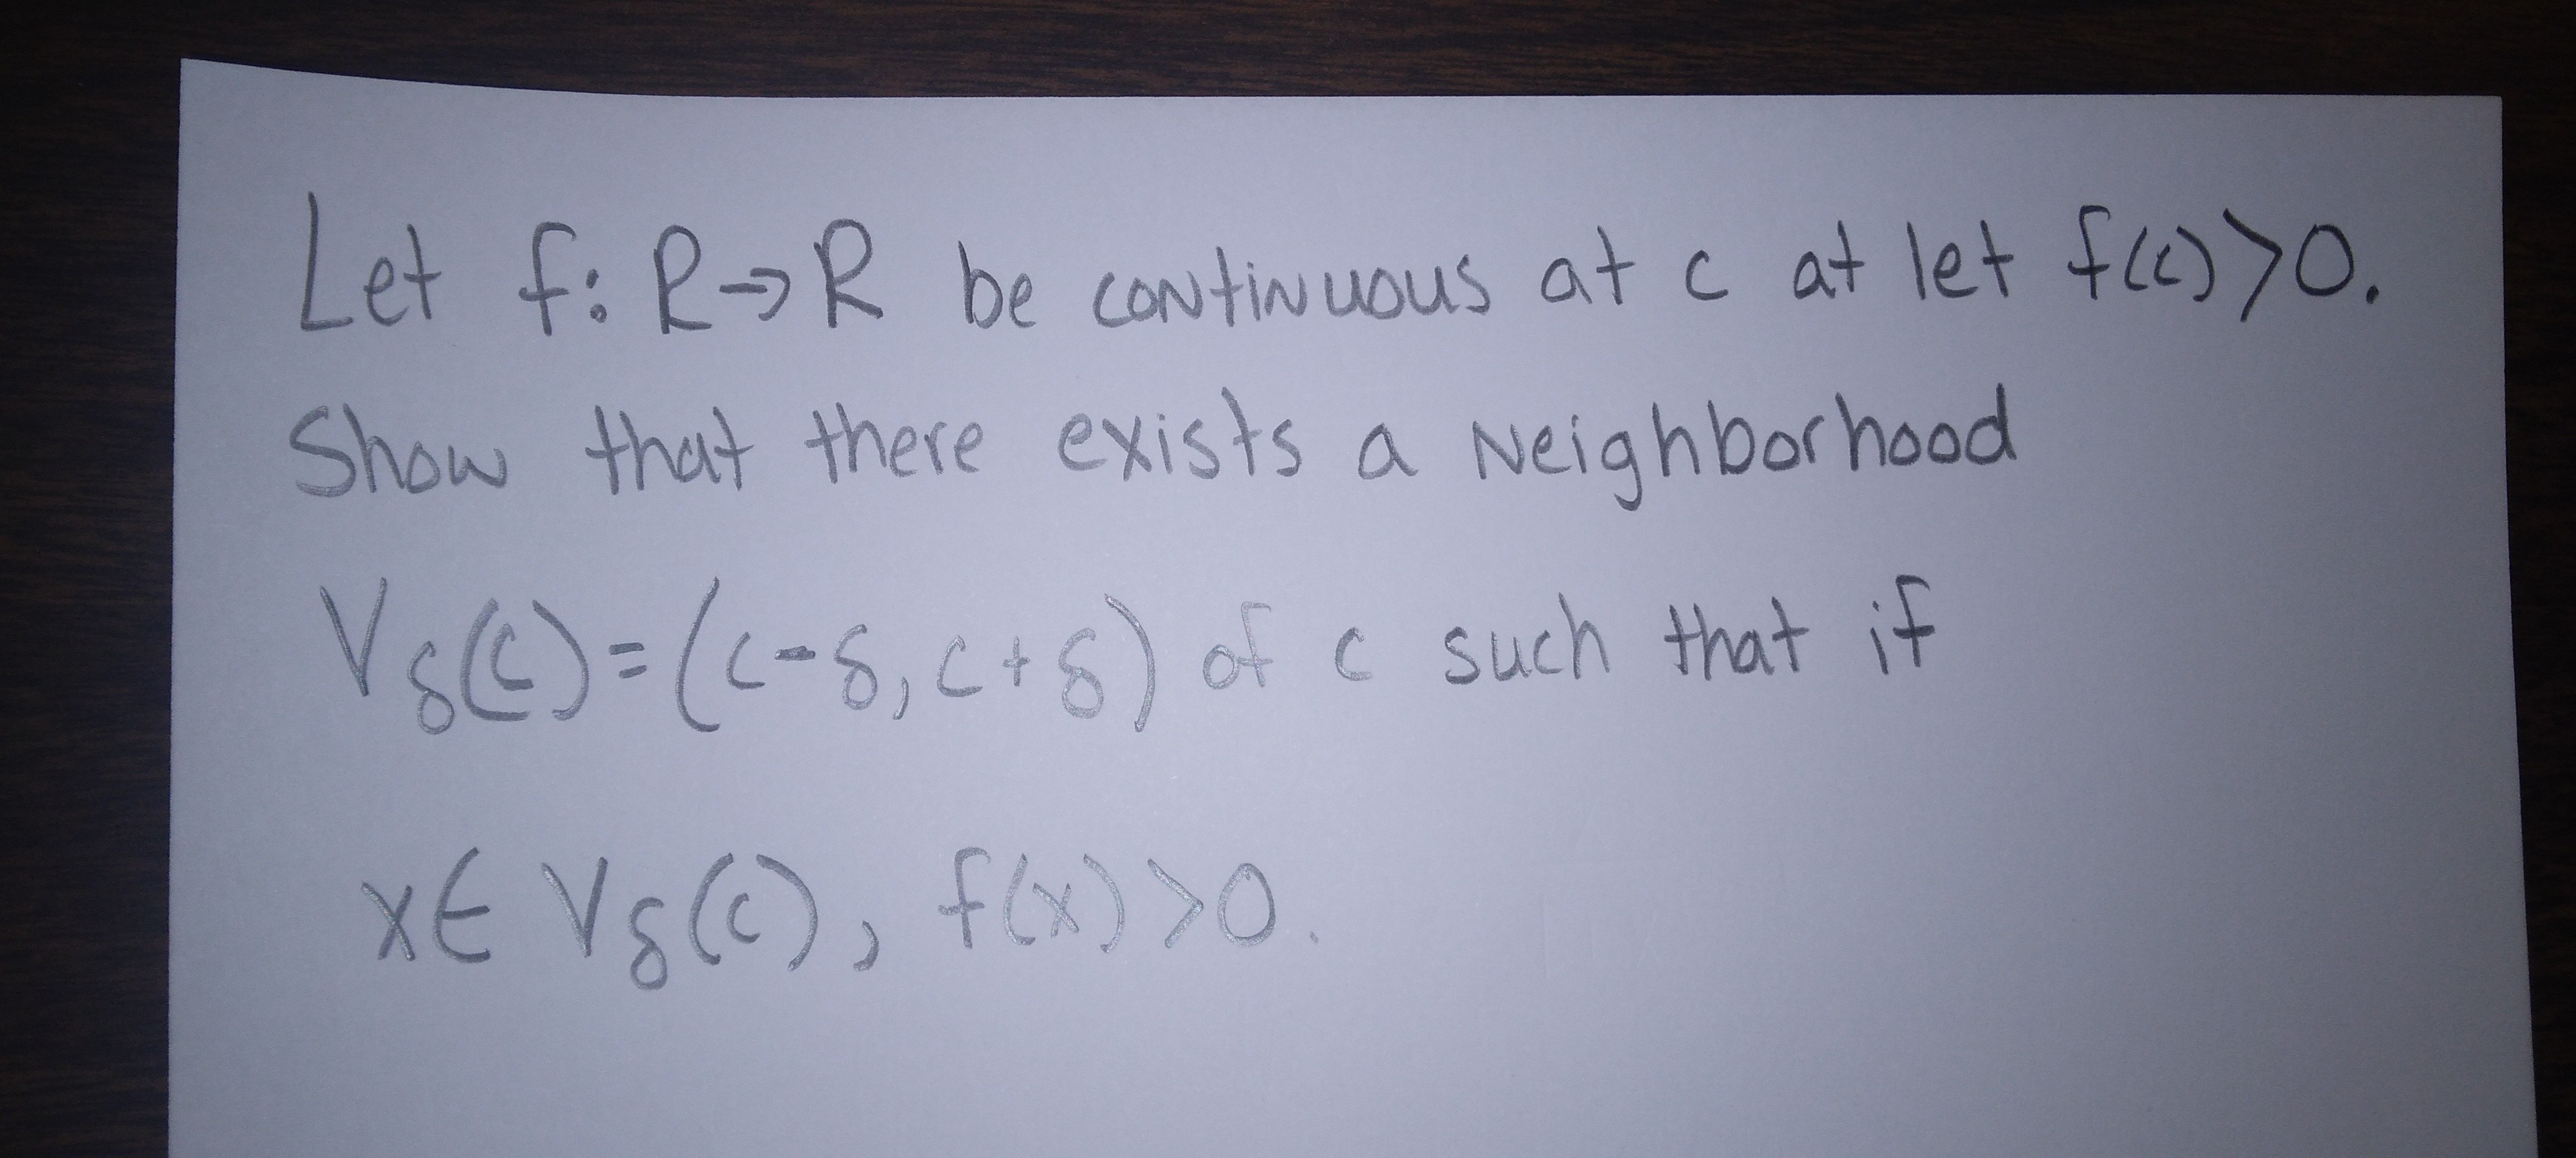 Let f: R→R be continuous at c at let f(c)>0.
Show that there exists a Neighborhood
V_δ(c)=(c-δ, c+δ) of c such that if
x∈ V_δ(c), f(x)>0.